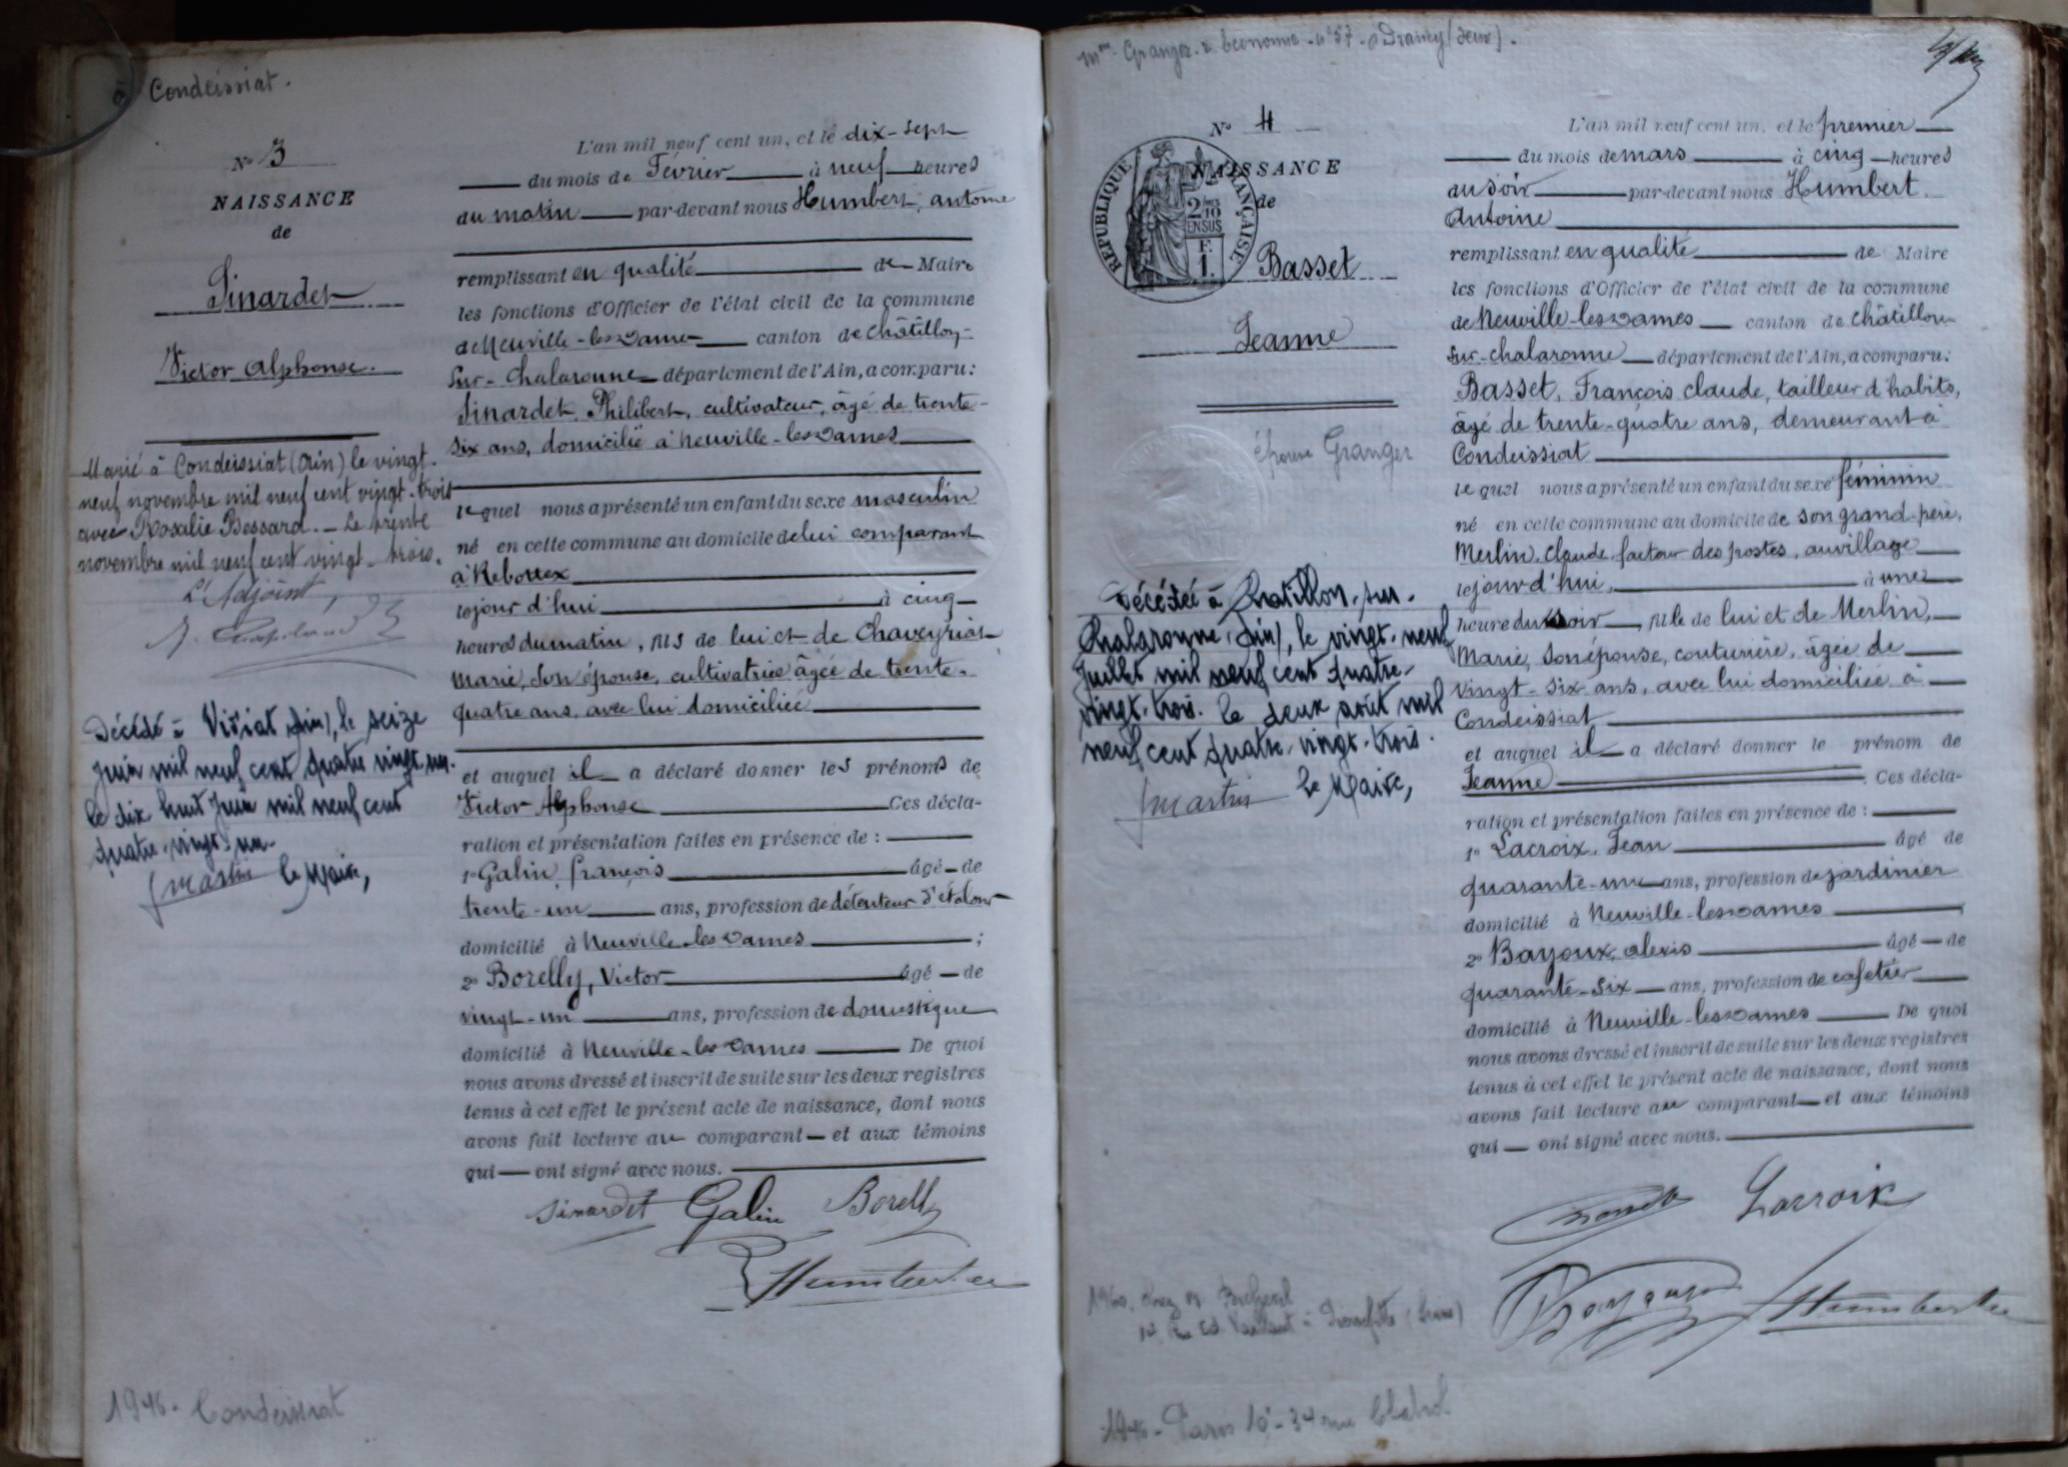 à Condeissiat.
N° 3
NAISSANCE
de
Sinardet
Victor Alphonse.
Marié à Condeissiat (Ain) le vingt-
neuf novembre mil neuf cent vingt-trois
avec Rosalie Bessard. - Le trente
novembre mil neuf cent vingt-trois.
L'Adjoint,
Décédé à Viriat (Ain), le seize
Juin mil neuf cent quatre vingt un.
le dix huit Juin mil neuf cent
quatre-vingt-un.
Jmartin le Maire,
1946. Condeissiat
L'an mil neuf cent un, et le dix-sept
du mois de Février à neuf heures
du matin par-devant nous Humbert, antoine
remplissant en qualité de Maire
les fonctions d'Officier de l'état civil de la commune
de Neuville-les-Dames canton de Châtillon-
sur-Chalaronne département de l'Ain, a comparu:
Sinardet Philibert, cultivateur, âgé de trente-
six ans, domicilié à Neuville-les-Dames
lequel nous a présenté un enfant du sexe masculin
né en cette commune au domicile de lui comparant
à Rebottex
le jour d'hui à cinq
heures du matin, fils de lui et de Chaveyriat
Marie, son épouse, cultivatrice âgée de trente-
quatre ans, avec lui domiciliée
et auquel il a déclaré donner les prénoms de
Victor Alphonse Ces décla-
ration et présentation faites en présence de :
1° Galin, françois âgé de
trente-un ans, profession de détenteur d'étalons
domicilié à Neuville-les-Dames ;
2° Borelly, Victor âgé de
vingt-un ans, profession de domestique
domicilié à Neuville-les-Dames De quoi
nous avons dressé et inscrit de suite sur les deux registres
tenus à cet effet le présent acte de naissance, dont nous
avons fait lecture au comparant et aux témoins
qui ont signé avec nous.
Sinardet Galin Borelly
Humbert
Mme Granger r. Economie n° 57 à Drancy (Seine).
N° 4
RÉPUBLIQUE FRANÇAISE
2/10 EN SUS
F.
1.
NAISSANCE
de
Basset
Jeanne
épouse Granger
Décédée à Chatillon-sur-
Chalaronne (Ain), le vingt-neuf
Juillet mil neuf cent quatre-
vingt-trois. le deux août mil
neuf cent quatre-vingt-trois.
Jmartin le Maire,
1946 - Paris 10e - 34 rue
L'an mil neuf cent un, et le premier
du mois de mars à cinq heures
du soir par-devant nous Humbert
Antoine
remplissant en qualité de Maire
les fonctions d'Officier de l'état civil de la commune
de Neuville-les-Dames canton de Châtillon
sur-chalaronne département de l'Ain, a comparu:
Basset, François claude, tailleur d'habits,
âgé de trente-quatre ans, demeurant à
Condeissiat
lequel nous a présenté un enfant du sexe féminin
né en cette commune au domicile de son grand-père,
Merlin, Claude, facteur des postes, au village
le jour d'hui, à une
heure du soir, fille de lui et de Merlin,
Marie, son épouse, couturière, âgée de
vingt-six ans, avec lui domiciliée à
Condeissiat
et auquel il a déclaré donner le prénom de
Jeanne Ces décla-
ration et présentation faites en présence de :
1° Lacroix, Jean âgé de
quarante-un ans, profession de jardinier
domicilié à Neuville-les-Dames
2° Bayoux, alexis âgé de
quarante-six ans, profession de cafetier
domicilié à Neuville-les-Dames De quoi
nous avons dressé et inscrit de suite sur les deux registres
tenus à cet effet le présent acte de naissance, dont nous
avons fait lecture au comparant et aux témoins
qui ont signé avec nous.
Basset Lacroix
Bayoux Humbert